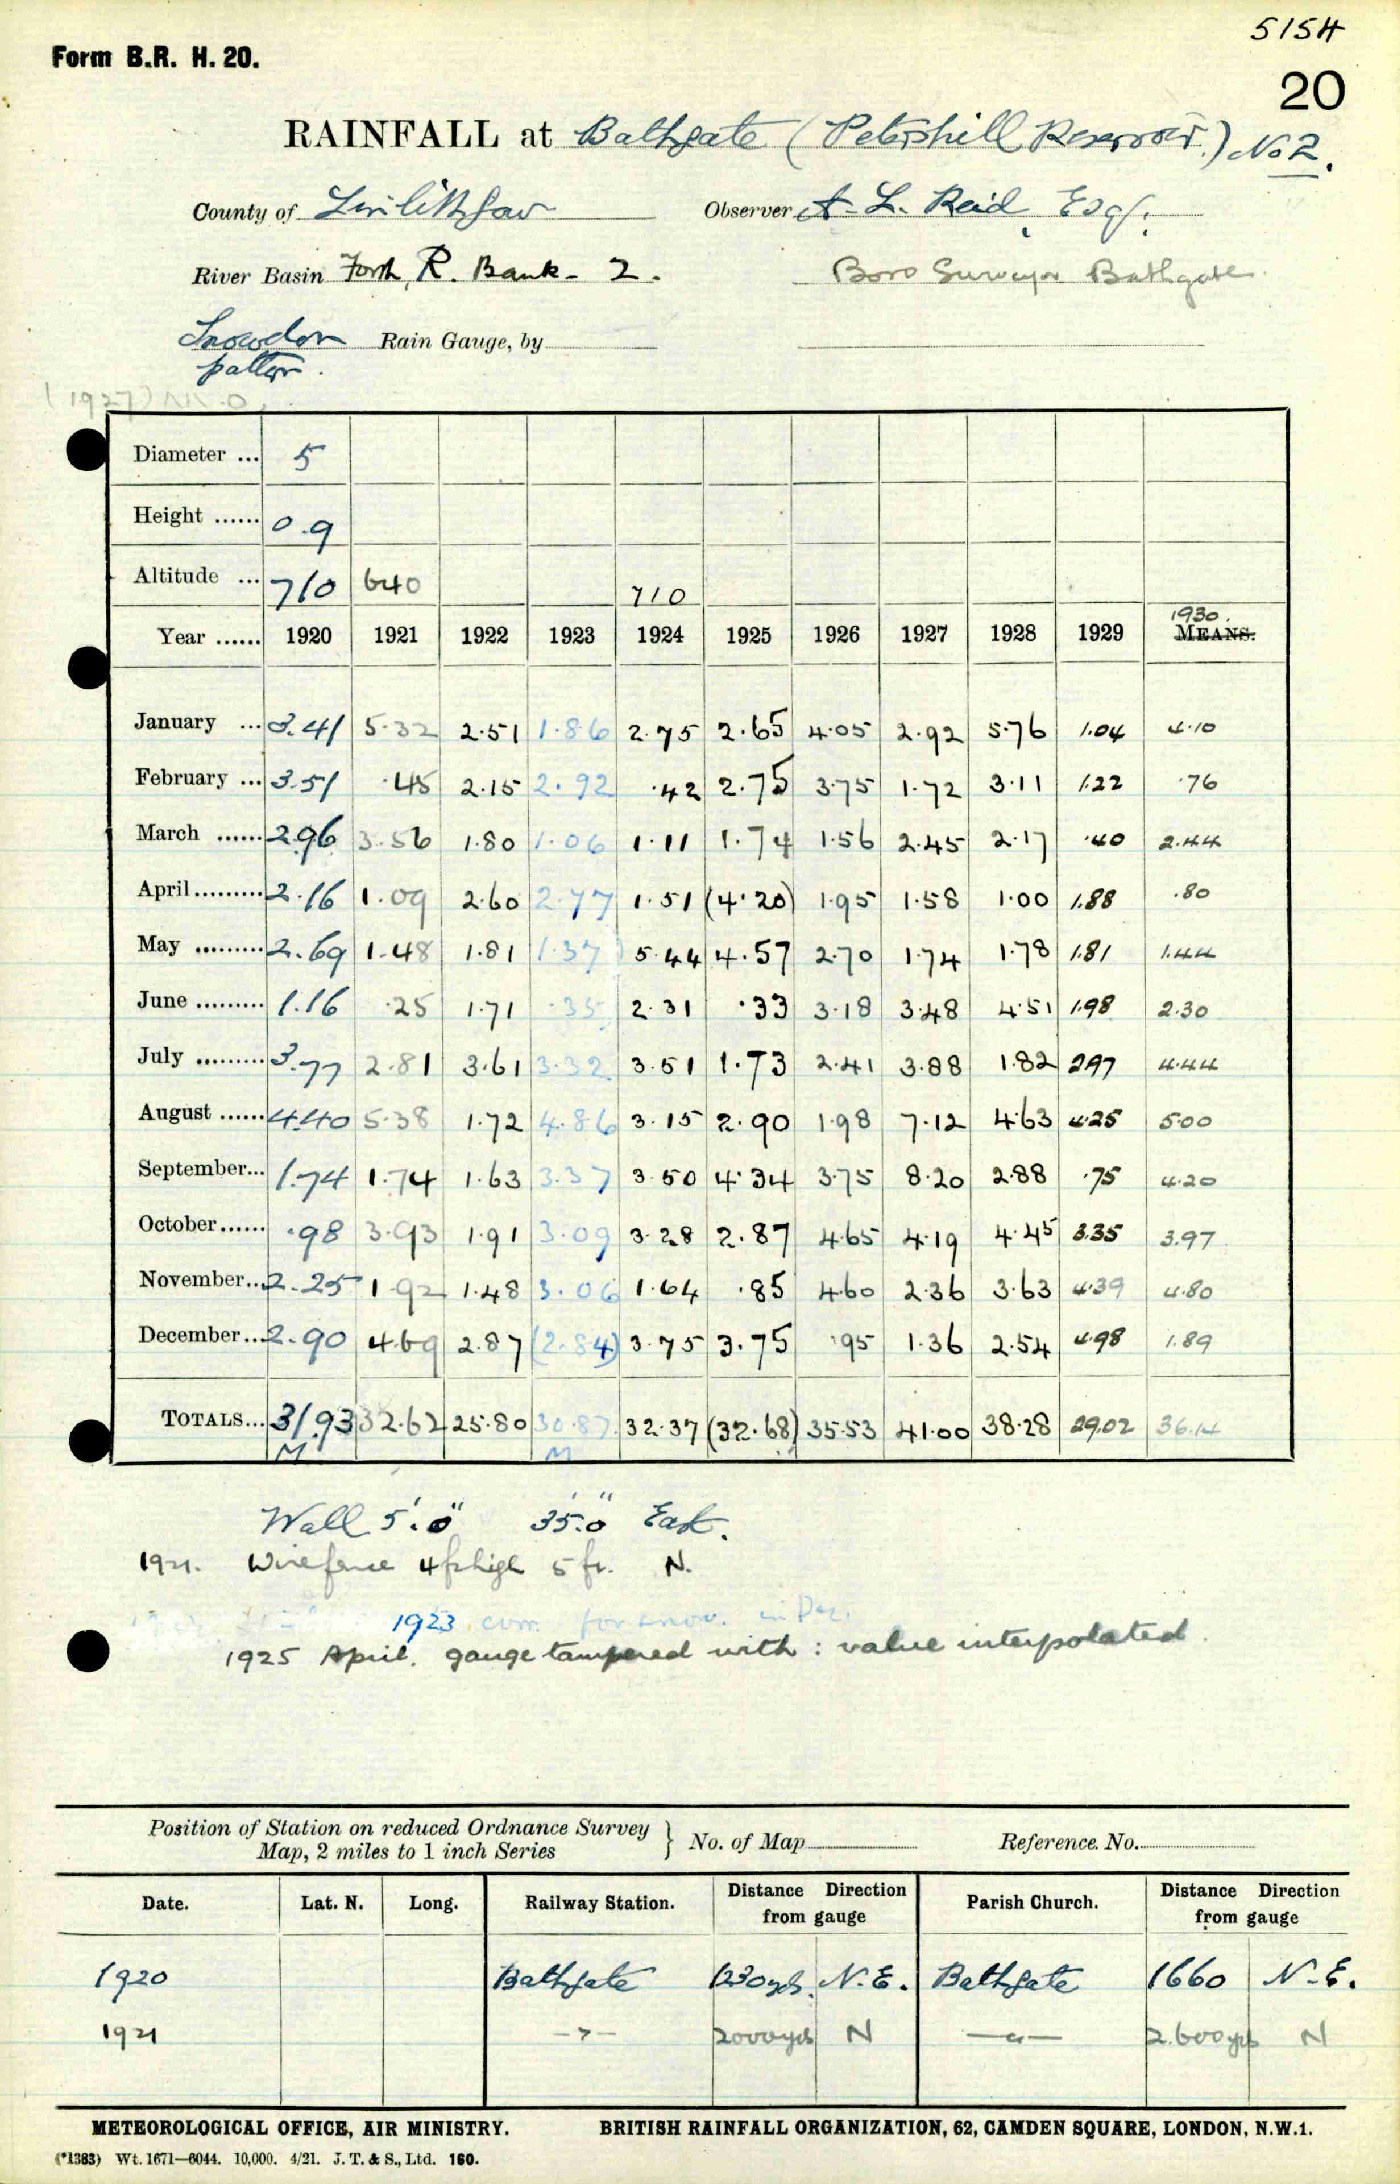 515H
Form B.R. H. 20.
20
RAINFALL at Bathgate (Petershill Reservoir.) No 2.
County of Linlithgow Observer A. L. Reid, Esq.
River Basin Forth, R. Bank - 2. Boro Surveyor Bathgate.
Snowdon Rain Gauge, by
pattern.
(1927) M.O.
Diameter ... 5
Height ...... 0.9
Altitude ... 710 640 710
Year ...... 1920 1921 1922 1923 1924 1925 1926 1927 1928 1929 1930. MEANS.
January ... 3.41 5.32 2.51 1.86 2.75 2.65 4.05 2.92 5.76 1.04 4.10
February ... 3.51 .45 2.15 2.92 .42 2.75 3.75 1.72 3.11 1.22 .76
March ...... 2.96 3.56 1.80 1.06 1.11 1.74 1.56 2.45 2.17 .40 2.44
April......... 2.16 1.09 2.60 2.77 1.51 (4.20) 1.95 1.58 1.00 1.88 .80
May ......... 2.69 1.48 1.81 1.37 5.44 4.57 2.70 1.74 1.78 1.81 1.44
June ......... 1.16 .25 1.71 .35 2.31 .33 3.18 3.48 4.51 1.98 2.30
July ......... 3.77 2.81 3.61 3.32 3.51 1.73 2.41 3.88 1.82 2.97 4.44
August ...... 4.40 5.38 1.72 4.86 3.15 2.90 1.98 7.12 4.63 4.25 5.00
September... 1.74 1.74 1.63 3.37 3.50 4.34 3.75 8.20 2.88 .75 4.20
October...... .98 3.93 1.91 3.09 3.28 2.87 4.65 4.19 4.45 3.35 3.97
November... 2.25 1.92 1.48 3.06 1.64 .85 4.60 2.36 3.63 4.39 4.80
December... 2.90 4.69 2.87 (2.84) 3.75 3.75 .95 1.36 2.54 4.98 1.89
TOTALS... 31.93 32.62 25.80 30.87 32.37 (32.68) 35.53 41.00 38.28 29.02 36.14
M M
Wall 5'.0" 35'.0" East.
1921. Wirefence 4ft high 5 ft. N.
1923 com. for snow. in Dec.
1925 April. gauge tampered with : value interpolated.
Position of Station on reduced Ordnance Survey
Map, 2 miles to 1 inch Series } No. of Map Reference No.
Date. Lat. N. Long. Railway Station. Distance Direction from gauge Parish Church. Distance Direction from gauge
1920 Bathgate 1230yds. N.E. Bathgate 1660 N.E.
1921 — " — 2000yds N — " — 2.600yds N
METEOROLOGICAL OFFICE, AIR MINISTRY. BRITISH RAINFALL ORGANIZATION, 62, CAMDEN SQUARE, LONDON, N.W.1.
(*1383) Wt. 1671—6044. 10,000. 4/21. J. T. & S., Ltd. 160.